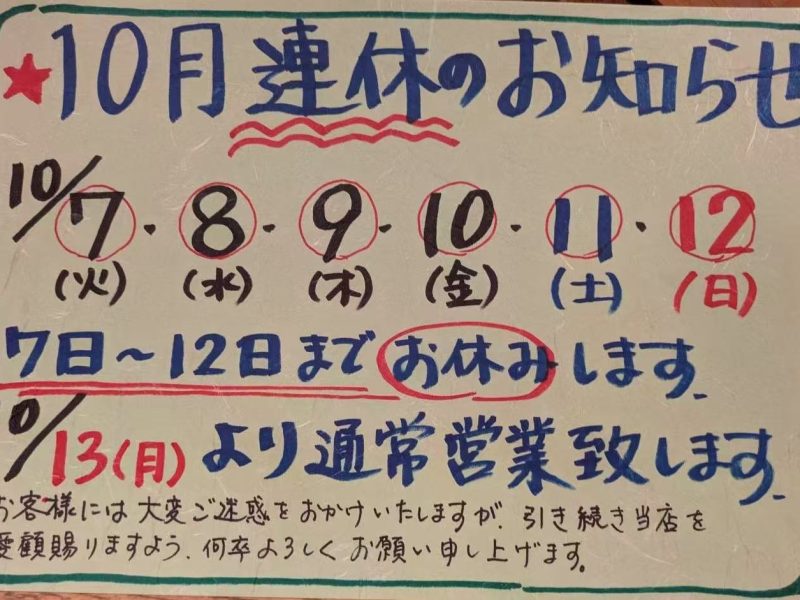 ★10月連休のお知らせ
10/7・8・9・10・11・12
(火) (水) (木) (金) (土) (日)
7日～12日までお休みします.
10/13(月)より通常営業致します.
お客様には大変ご迷惑をおかけいたしますが、引き続き当店を
愛顧賜りますよう、何卒よろしくお願い申し上げます。